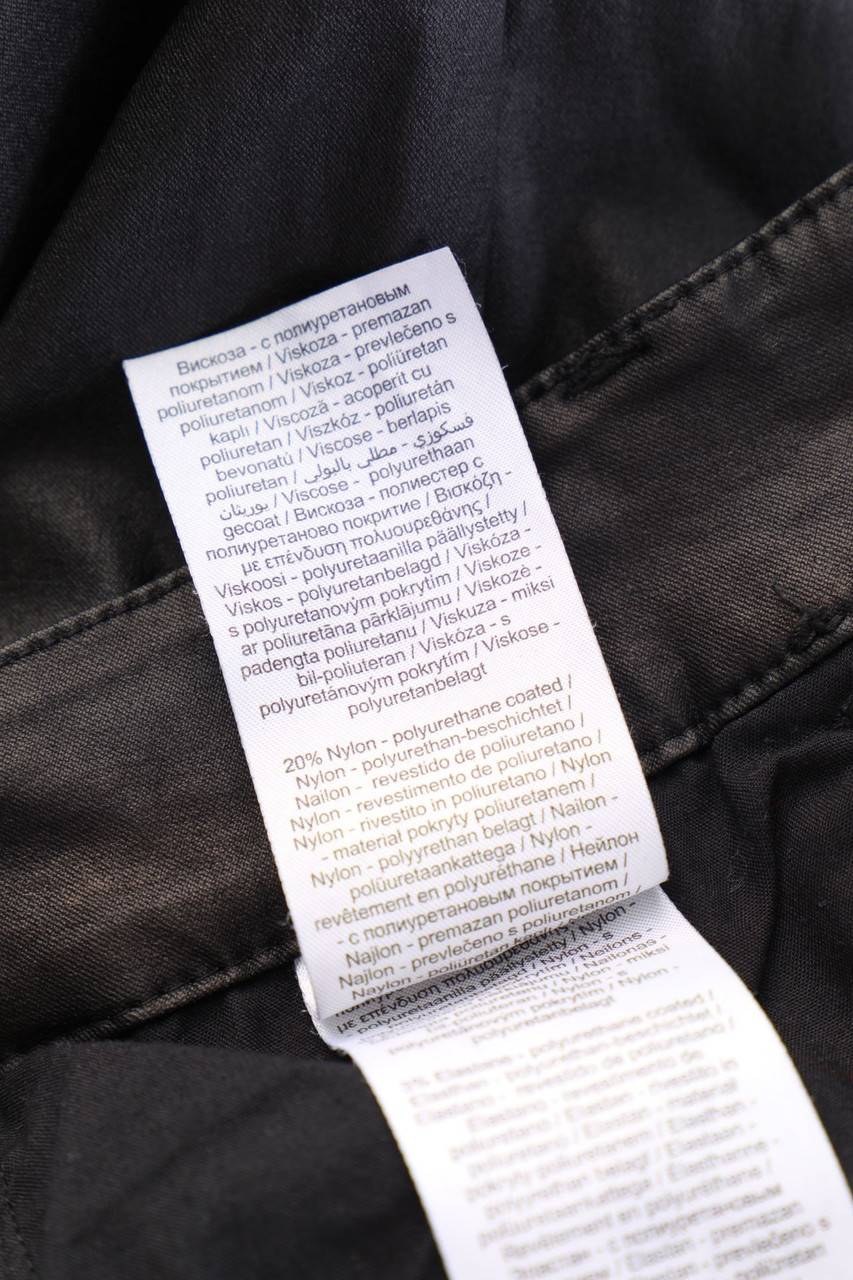 Вискоза - с полиуретановым
покрытием / Viskoza - premazan
poliuretanom / Viskoza - prevlečeno s
poliuretanom / Viskoz - poliüretan
kaplı / Viscoză - acoperit cu
poliuretan / Viszkóz - poliuretán
bevonatú / Viscose - berlapis
poliuretan / فسكوزي - مطلى بالبولى
يوريتان / Viscose - polyurethaan
gecoat / Вискоза - полиестер с
полиуретаново покритие / Βισκόζη -
με επένδυση πολυουρεθάνης /
Viskoosi - polyuretaanilla päällystetty /
Viskos - polyuretanbelagd / Viskóza -
s polyuretanovým pokrytím / Viskoze -
ar poliuretāna pārklājumu / Viskozė -
padengta poliuretanu / Viskuza - miksi
bil-poliuteran / Viskóza - s
polyuretánovým pokrytím / Viskose -
polyuretanbelagt
20% Nylon - polyurethane coated /
Nylon - polyurethan-beschichtet /
Nailon - revestido de poliuretano /
Nylon - revestimento de poliuretano /
Nylon - rivestito in poliuretano / Nylon
- materiał pokryty poliuretanem /
Nylon - polyyrethan belagt / Nailon -
polüuretaankattega / Nylon -
revêtement en polyuréthane / Нейлон
- с полиуретановым покрытием /
Najlon - premazan poliuretanom /
Najlon - prevlečeno s poliuretanom /
Naylon - poliüretan
με επένδυση / Nylon -
polyuretaanilla päällystetty / Nylon - s
/ Neilons -
/ Nailonas -
/ Nylon - miksi
/ Nylon - s
polyuretánovým pokrytím / Nylon -
polyuretanbelagt
Elastane - polyurethane coated /
Elastan - polyurethan-beschichtet /
Elastano - revestido de poliuretano /
Elastano - revestimento de
poliuretano / Elastan - rivestito in
poliuretano / Elastan - materiał
pokryty poliuretanem / Elasthan -
polyyrethan belagt / Elastaan -
polüuretaankattega / Elasthanne -
Revêtement en polyuréthane /
Эластан - с полиуретановым
/ Elastan - premazan
prevlečeno s